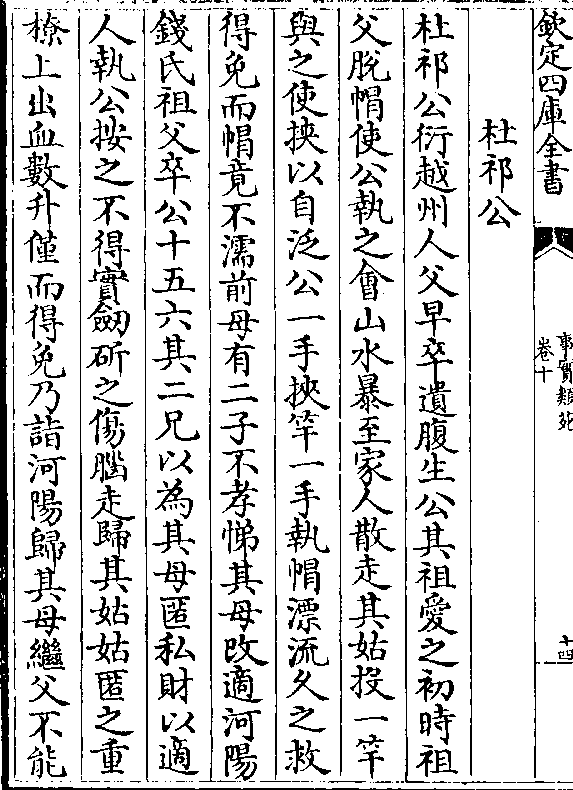 欽定四庫全書
事實類苑
卷十
十四
杜祁公
杜祁公衍越州人父早卒遺腹生公其祖愛之初時祖
父脫帽使公執之會山水暴至家人散走其姑投一竿
與之使挾以自泛公一手挾竿一手執帽漂流久之救
得免而帽竟不濡前母有二子不孝悌其母改適河陽
錢氏祖父卒公十五六其二兄以為其母匿私財以適
人執公按之不得實劒斫之傷腦走歸其姑姑匿之重
橑上出血數升僅而得免乃詣河陽歸其母繼父不能